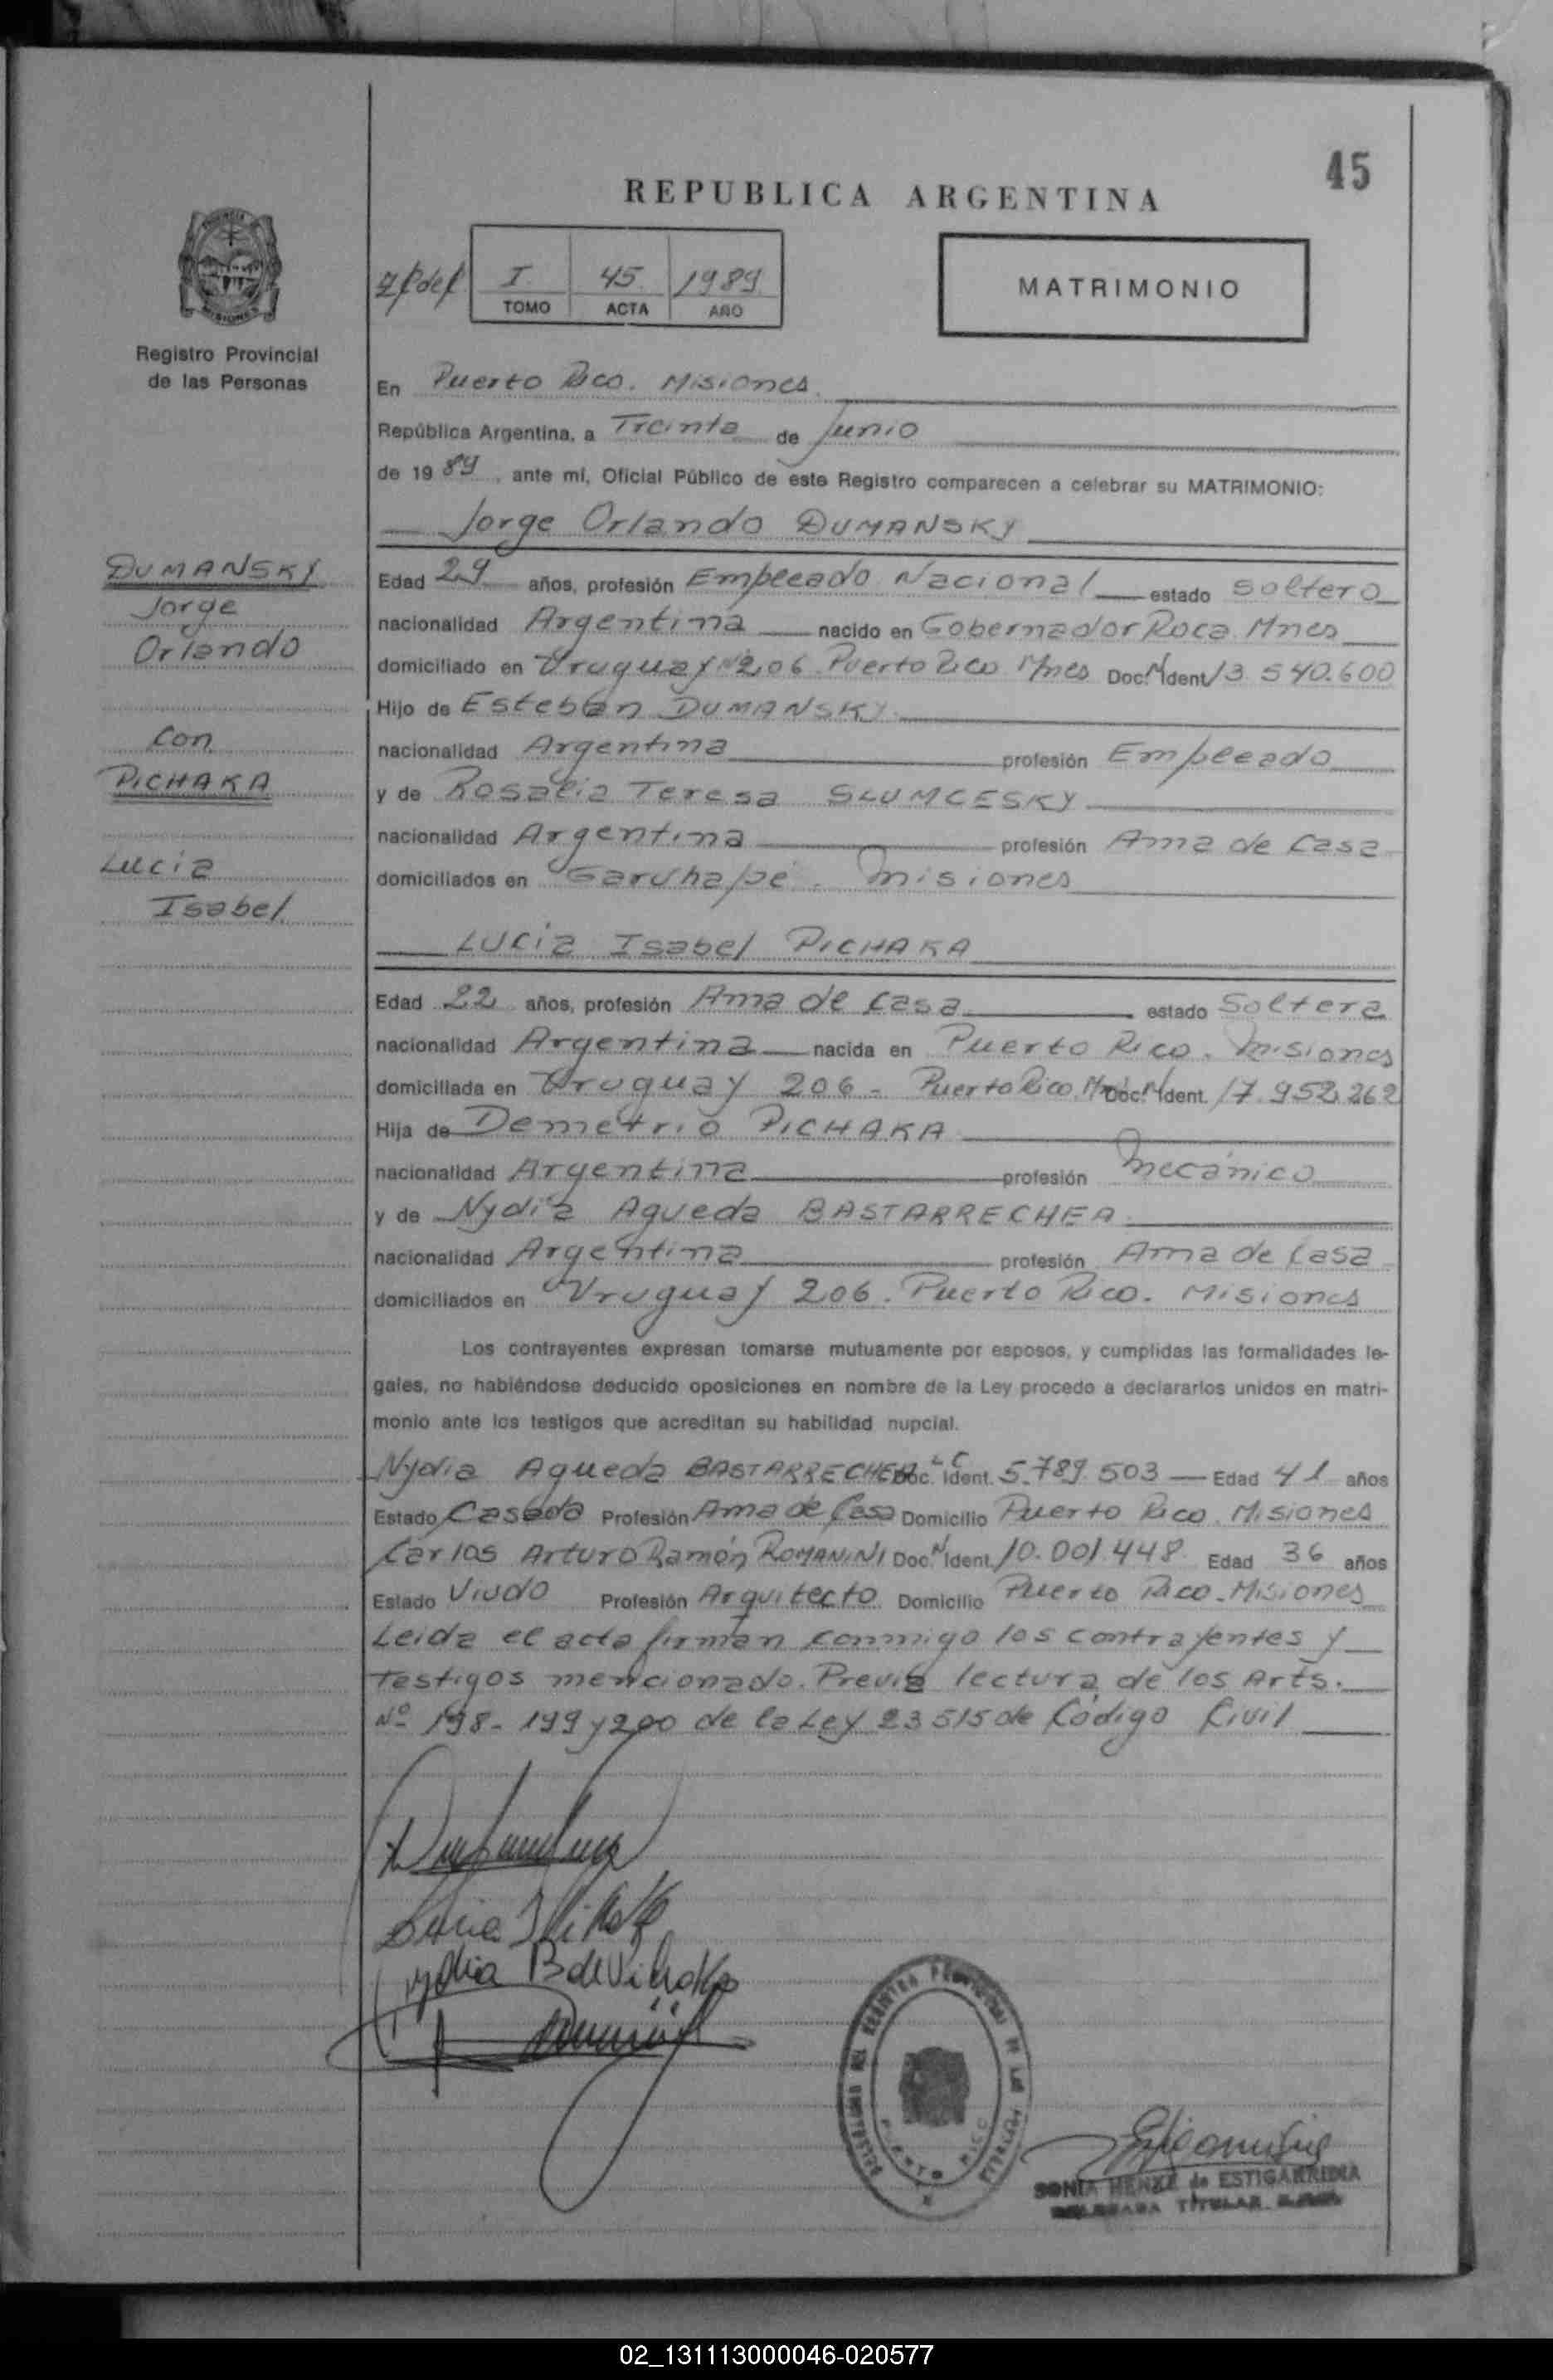 45
REPUBLICA ARGENTINA
I 45 1989
TOMO ACTA AÑO
MATRIMONIO
Registro Provincial
de las Personas
En Puerto Rico. Misiones.
República Argentina, a Treinta de Junio
de 1989, ante mí, Oficial Público de este Registro comparecen a celebrar su MATRIMONIO:
Jorge Orlando DUMANSKY
DUMANSKY
Jorge
Orlando
con
PICHAKA
Lucia
Isabel
Edad 29 años, profesión Empleado Nacional estado Soltero
nacionalidad Argentina nacido en Gobernador Roca Mnes
domiciliado en Uruguay Nº 206 Puerto Rico Mnes Doc. Ident. 13.540.600
Hijo de Esteban DUMANSKY.
nacionalidad Argentina profesión Empleado
y de Rosalia Teresa SLUMCESKY
nacionalidad Argentina profesión Ama de Casa
domiciliados en Garuhapé. Misiones
Lucia Isabel PICHAKA
Edad 22 años, profesión Ama de Casa estado Soltera
nacionalidad Argentina nacida en Puerto Rico. Misiones
domiciliada en Uruguay 206 - Puerto Rico. Mnes Doc. Ident. 17.952.262
Hija de Demetrio PICHAKA
nacionalidad Argentina profesión Mecánico
y de Nydia Agueda BASTARRECHEA.
nacionalidad Argentina profesión Ama de Casa
domiciliados en Uruguay 206. Puerto Rico. Misiones
Los contrayentes expresan tomarse mutuamente por esposos, y cumplidas las formalidades le-
gales, no habiéndose deducido oposiciones en nombre de la Ley procedo a declararlos unidos en matri-
monio ante los testigos que acreditan su habilidad nupcial.
Nydia Agueda BASTARRECHEA Doc. LC Ident. 5.789.503 Edad 41 años
Estado Casada Profesión Ama de Casa Domicilio Puerto Rico. Misiones
Carlos Arturo Ramón ROMANINI Doc. N Ident. 10.001.448 Edad 36 años
Estado Viudo Profesión Arquitecto Domicilio Puerto Rico - Misiones
Leida el acta firman conmigo los contrayentes y
testigos mencionado. Previa lectura de los Arts.
Nº 198 - 199 y 200 de la Ley 23515 de Código Civil
Nydia B de Pichaka
PUERTO RICO
SONIA HENZE de ESTIGARRIBIA
DELEGADA TITULAR
02_131113000046-020577